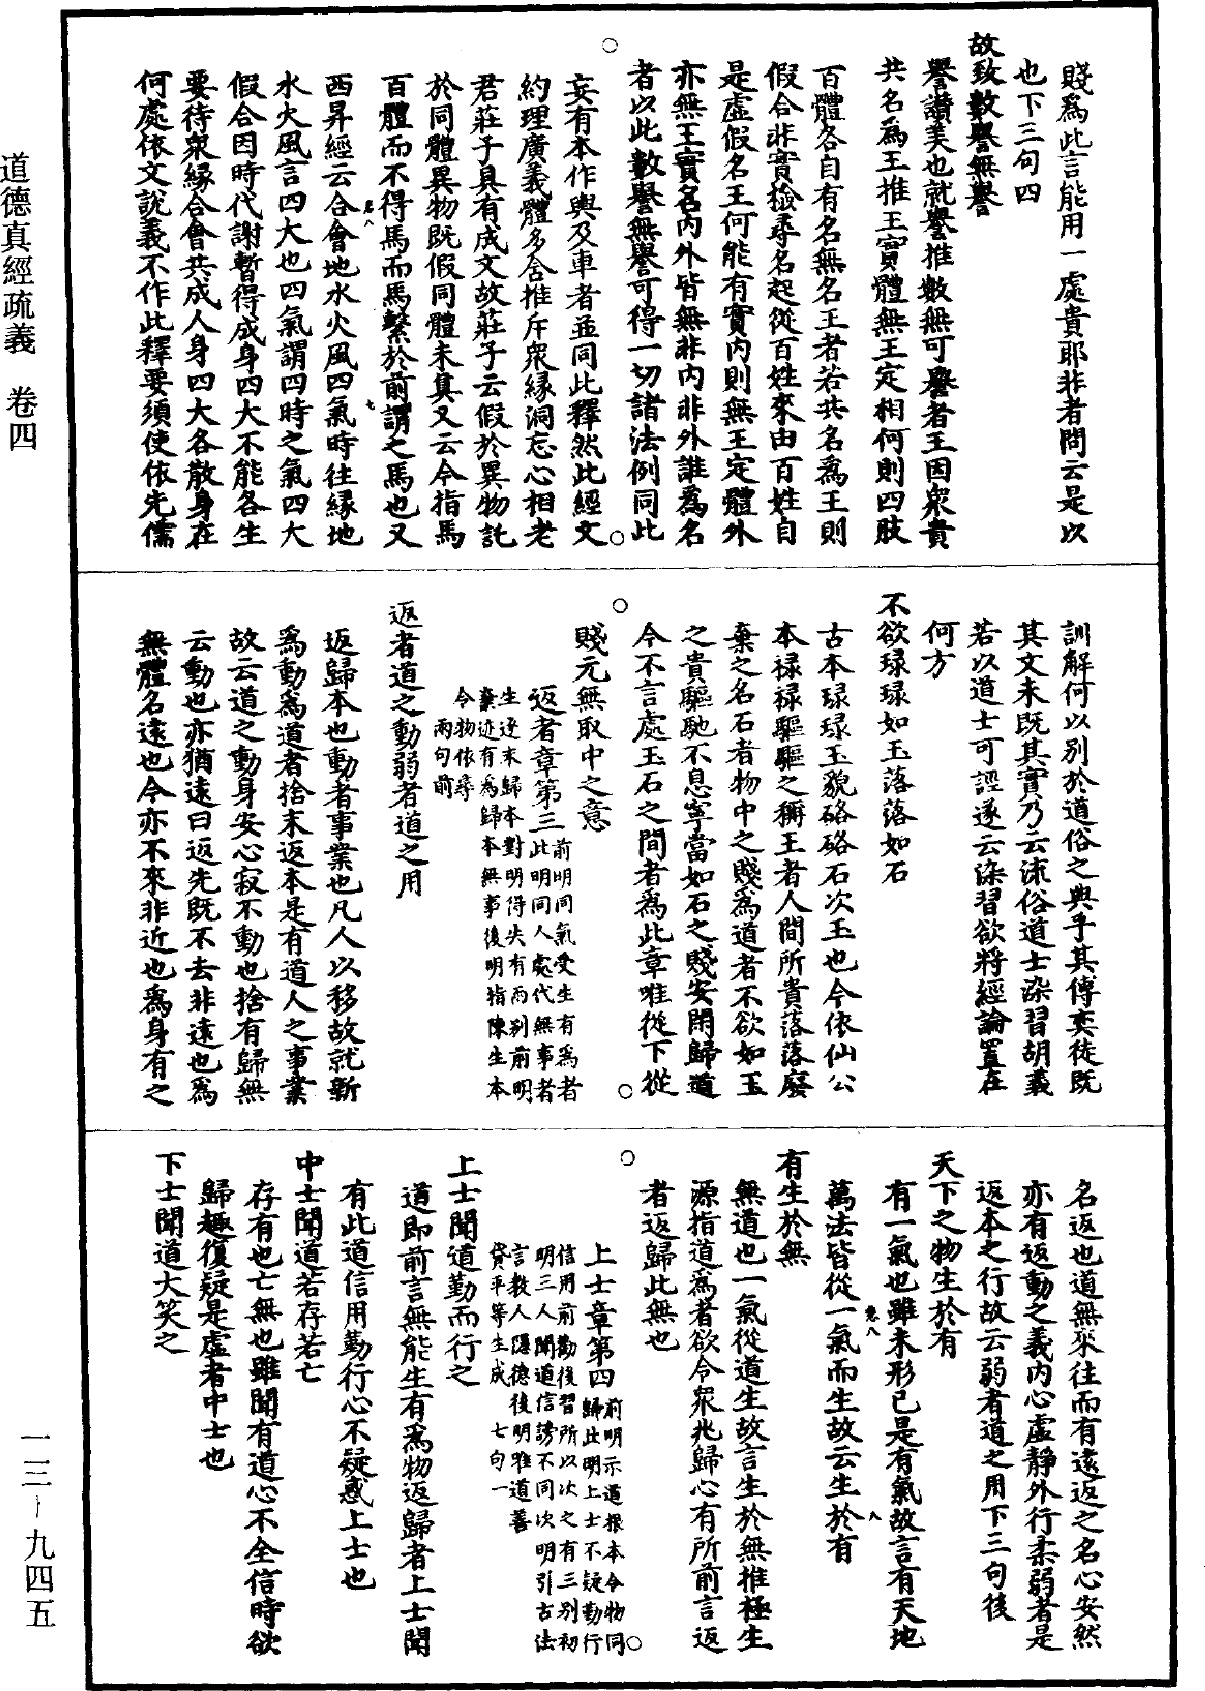 賤爲此言能用一處貴耶非者問云是以
也下三句四
故致數譽無譽
譽讚美也就譽推數無可譽者王因衆貴
共名爲王推王實體無王定相何則四肢
百體各自有名無名王者若共名爲王則
假合非實撿尋名起從百姓來由百姓自
是虛假名王何能有實內則無王定體外
亦無王實名內外皆無非內非外誰爲名
者以此數譽無譽可得一切諸法例同此
妄有本作輿及車者並同此釋然此經文
約理廣義體多含推斥衆緣洞忘心相老
君莊子具有成文故莊子云假於異物託
於同體異物既假同體未真又云今指馬
百體而不得馬而馬繫於前謂之馬也又
西昇經云合會地水火風四氣時往緣地
水火風言四大也四氣謂四時之氣四大
假合因時代謝暫得成身四大不能各生
要待衆緣合會共成人身四大各散身在
何處依文說義不作此釋要須使依先儒
訓解何以別於道俗之典乎其傳奕徒既
其文未既其實乃云沫俗道士染習胡義
若以道士可誣遂云染習欲將經論置在
何方
不欲琭琭如玉落落如石
古本琭琭玉貌硌硌石次玉也今依仙公
本祿祿驅驅之稱王者人間所貴落落廢
棄之名石者物中之賤爲道者不欲如玉
之貴驅馳不息寧當如石之賤安閑歸道
今不言處玉石之間者爲此章唯從下從
賤元無取中之意
返者章第三前明同氣受生有爲者
此明同人處代無事者
生逐末歸本對明得失有兩別前明
棄迹有爲歸本無事後明指陳生本
令物依尋
兩句前
返者道之動弱者道之用
返歸本也動者事業也凡人以移故就新
爲動爲道者捨末返本是有道人之事業
故云道之動身安心寂不動也捨有歸無
云動也亦猶遠曰返先既不去非遠也爲
無體名遠也今亦不來非近也爲身有之
名返也道無來往而有遠返之名心安然
亦有返動之義內心虛靜外行柔弱者是
返本之行故云弱者道之用下三句後
天下之物生於有
有一氣也雖未形已是有氣故言有天地
萬法皆從一氣而生故云生於有
有生於無
無道也一氣從道生故言生於無推極生
源指道爲者欲令衆兆歸心有所前言返
者返歸此無也
上士章第四前明示道根本令物同
歸此明上士不疑勤行
信用前勸後習所以次之有三別初
明三人聞道信謗不同次明引古法
言教人隱德後明唯道善
貸平等生成
七句一
上士聞道勤而行之
道即前言無能生有爲物返歸者上士聞
有此道信用勤行心不疑惑上士也
中士聞道若存若亡
存有也亡無也雖聞有道心不全信時欲
歸趣復疑是虛者中士也
下士聞道大笑之
道德真經疏義　卷四
一三－九四五